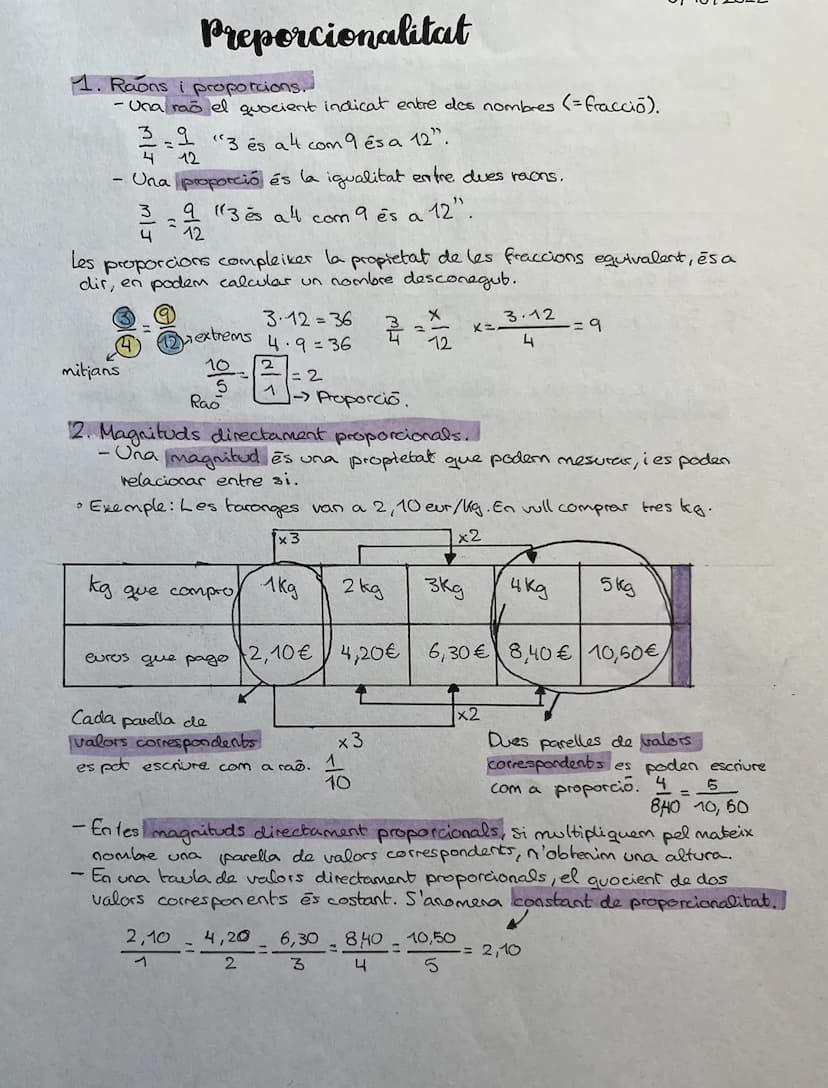 Preporcionalitat
1. Raons i proporcions.
- Una raó el quocient indicat entre dos nombres (=fracció).
3/4 = 9/12 "3 és a 4 com 9 és a 12".
- Una proporció és la igualitat entre dues raons.
3/4 = 9/12 "3 és a 4 com 9 és a 12".
Les proporcions compleixer la propietat de les fraccions equivalent, és a
dir, en podem calcular un nombre desconegub.
3/4 = 9/12 → extrems 3·12 = 36 3/4 = x/12 x = 3·12/4 = 9
4·9 = 36
mitjans
10/5 = 2/1 = 2
Raó → Proporció.
2. Magnituds directament proporcionals.
- Una magnitud és una propietat que podem mesurar, i es poden
relacionar entre si.
• Exemple: Les taronges van a 2,10 eur/kg. En vull comprar tres kg.
x3 x2
kg que compro 1kg 2kg 3kg 4kg 5kg
euros que pago 2,10€ 4,20€ 6,30€ 8,40€ 10,50€
x2
x3
Cada parella de
valors correspondents
es pot escriure com a raó. 1/10
Dues parelles de valors
correspondents es poden escriure
com a proporció. 4/8,40 = 5/10,50
- En les magnituds directament proporcionals, si multipliquem pel mateix
nombre una parella de valors correspondents, n'obtenim una altura.
- En una taula de valors directament proporcionals, el quocient de dos
valors corresponents és costant. S'anomena constant de proporcionalitat.
2,10/1 = 4,20/2 = 6,30/3 = 8,40/4 = 10,50/5 = 2,10